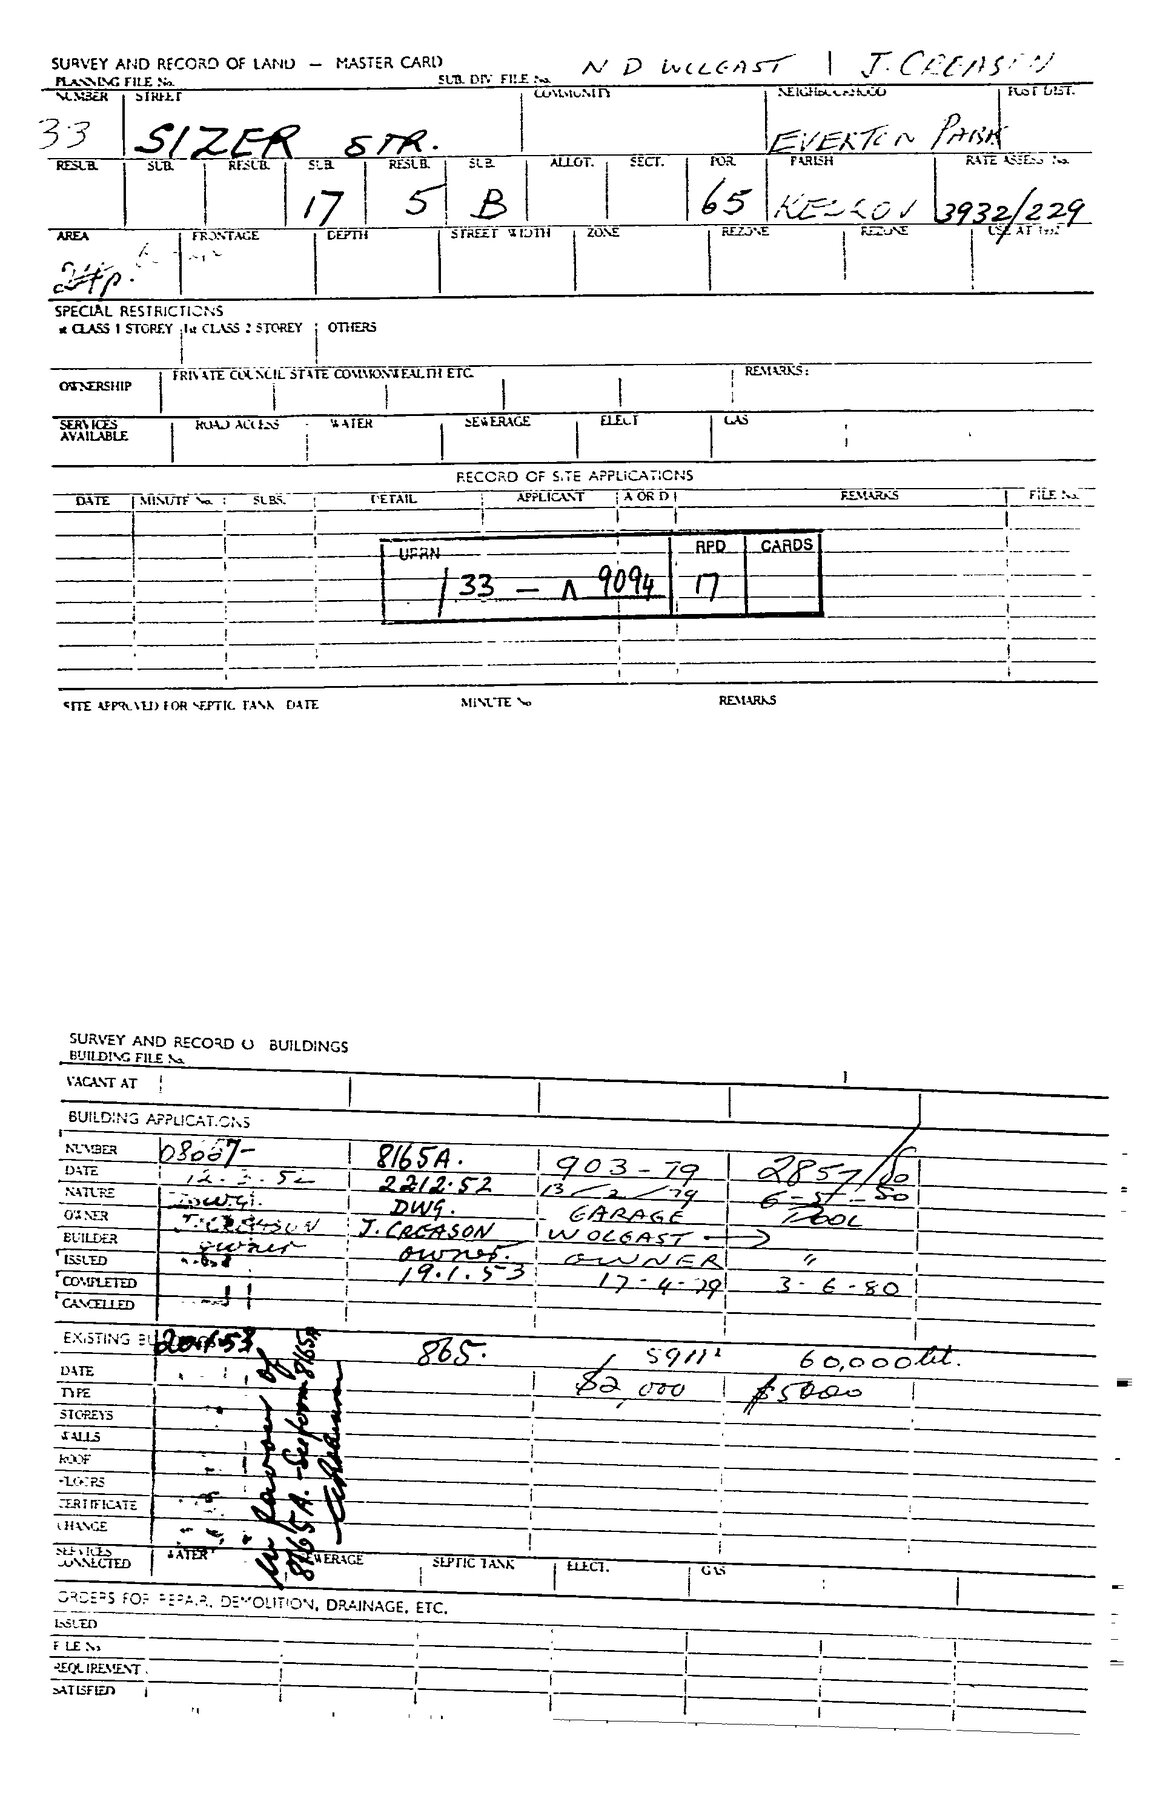 SURVEY AND RECORD OF LAND — MASTER CARD N D WOLGAST | J. CREASON
PLANNING FILE No. SUB. DIV. FILE No.
NUMBER STREET COMMUNITY NEIGHBOURHOOD POST DIST.
33 SIZER STR. EVERTON PARK
RESUB. SUB. RESUB. SUB. RESUB. SUB. ALLOT. SECT. POR. PARISH RATE ASSESS No.
17 5 B 65 3932/229
AREA FRONTAGE DEPTH STREET WIDTH ZONE REZONE REZONE USE AT
24p.
SPECIAL RESTRICTIONS
1st CLASS 1 STOREY 1st CLASS 2 STOREY OTHERS
PRIVATE COUNCIL STATE COMMONWEALTH ETC. REMARKS:
OWNERSHIP
SERVICES AVAILABLE ROAD ACCESS WATER SEWERAGE ELECT GAS
RECORD OF SITE APPLICATIONS
DATE MINUTE No. SUBS. DETAIL APPLICANT A OR D REMARKS FILE No.
UPRN RPD CARDS
/ 33 — Λ 9094 17
SITE APPROVED FOR SEPTIC TANK DATE MINUTE No REMARKS
SURVEY AND RECORD O BUILDINGS
BUILDING FILE No.
VACANT AT
BUILDING APPLICATIONS
NUMBER 8165A. 903-79 2857/80
DATE 12.3.52 2212.52 13/2/79
NATURE DWG. GARAGE POOL
OWNER J. CREASON J. CREASON WOLGAST →
BUILDER owner owner. OWNER "
ISSUED 19.1.53 17-4-79 3-6-80
COMPLETED
CANCELLED
EXISTING 865. 60,000 lit.
DATE $2,000 $5000
TYPE
STOREYS
WALLS
ROOF
FLOORS
CERTIFICATE
CHANGE
in favour of
8165A. - See form 8165A
SERVICES CONNECTED WATER SEWERAGE SEPTIC TANK ELECT. GAS
ORDERS FOR REPAIR, DEMOLITION, DRAINAGE, ETC.
ISSUED
FILE No
REQUIREMENT
SATISFIED